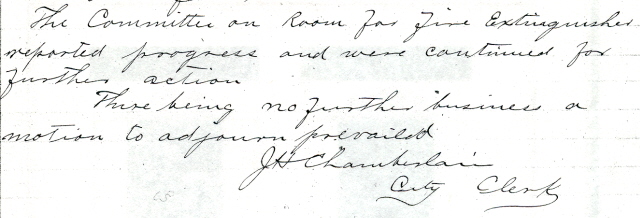 The Committee on Room for Fire Extinguisher
reported progress and were continued for
further action
There being no further business a
motion to adjourn prevailed
J H Chamberlain
City Clerk